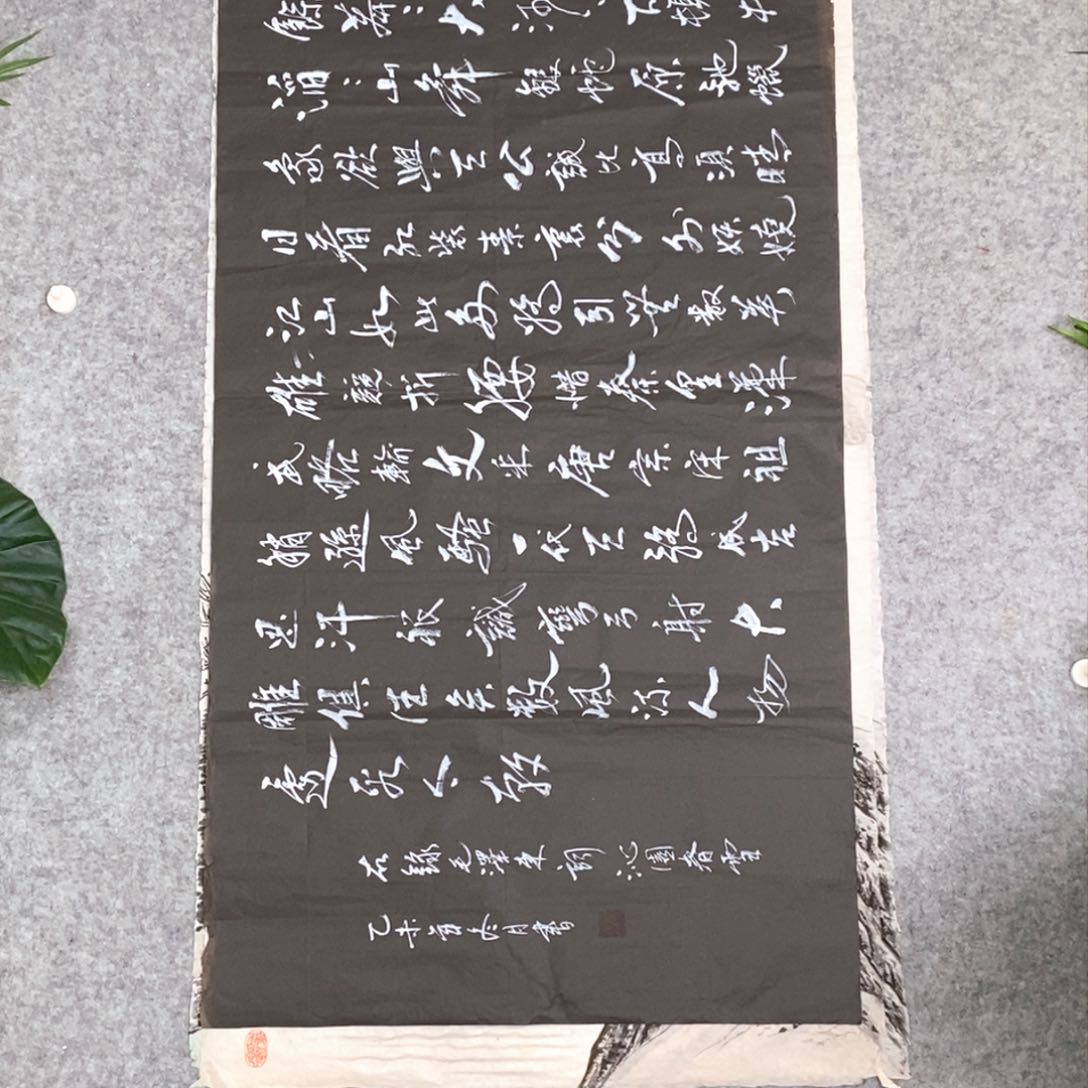 餘莽〻大河上下頓失
滔〻山舞銀蛇原馳蠟
象欲與天公試比高須晴
日看紅裝素裹分外妖嬈
江山如此多嬌引無數英
雄競折腰惜秦皇漢
武略輸文采唐宗宋祖
稍遜風騷一代天驕成吉
思汗祇識彎弓射大
雕俱往矣數風流人物
還看今朝
右錄毛澤東詞沁園春雪
乙未月書